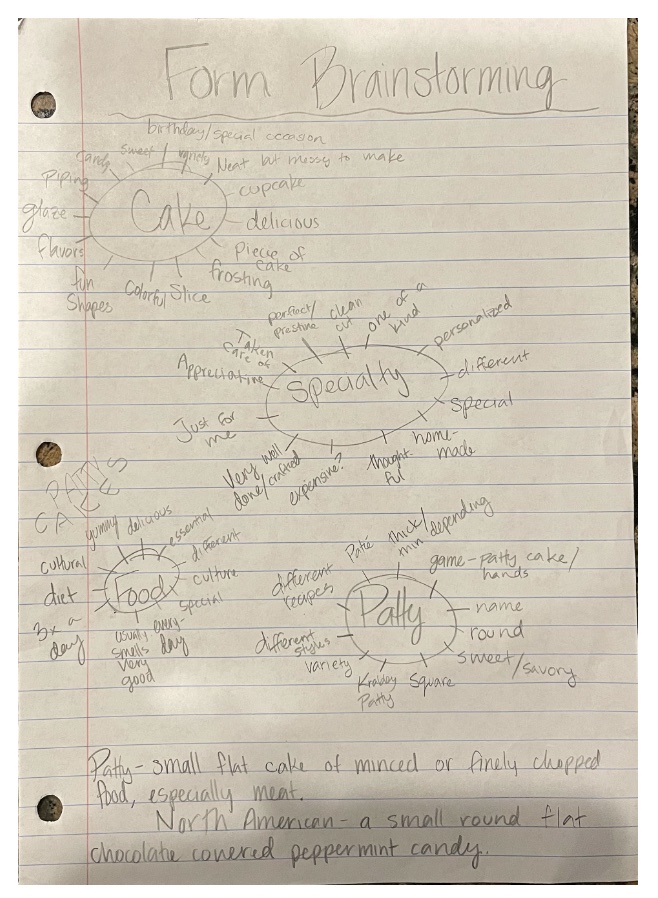 Form Brainstorming
birthday/special occasion
candy
sweet
variety
Neat but messy to make
Piping
cupcake
glaze
Cake
delicious
flavors
Piece of
cake
frosting
fun
Shapes
Colorful
Slice
perfect/
prestine
clean
cut
one of a
kind
personalized
Taken
care of
Appreciative
Specialty
different
Special
Just for
me
home-
made
Very well
done/crafted
expensive?
thought-
ful
PATTY'S
CAKES
yummy
delicious
essential
different
cultural
Food
culture
diet
special
3x a
day
usually
smells
very
good
every-
day
Patté
thick/
thin depending
game-patty cake/
hands
different
recipes
Patty
name
round
different
styles
variety
sweet/savory
Krabby
Patty
Square
Patty- small flat cake of minced or finely chopped
food, especially meat.
North American- a small round flat
chocolate covered peppermint candy.